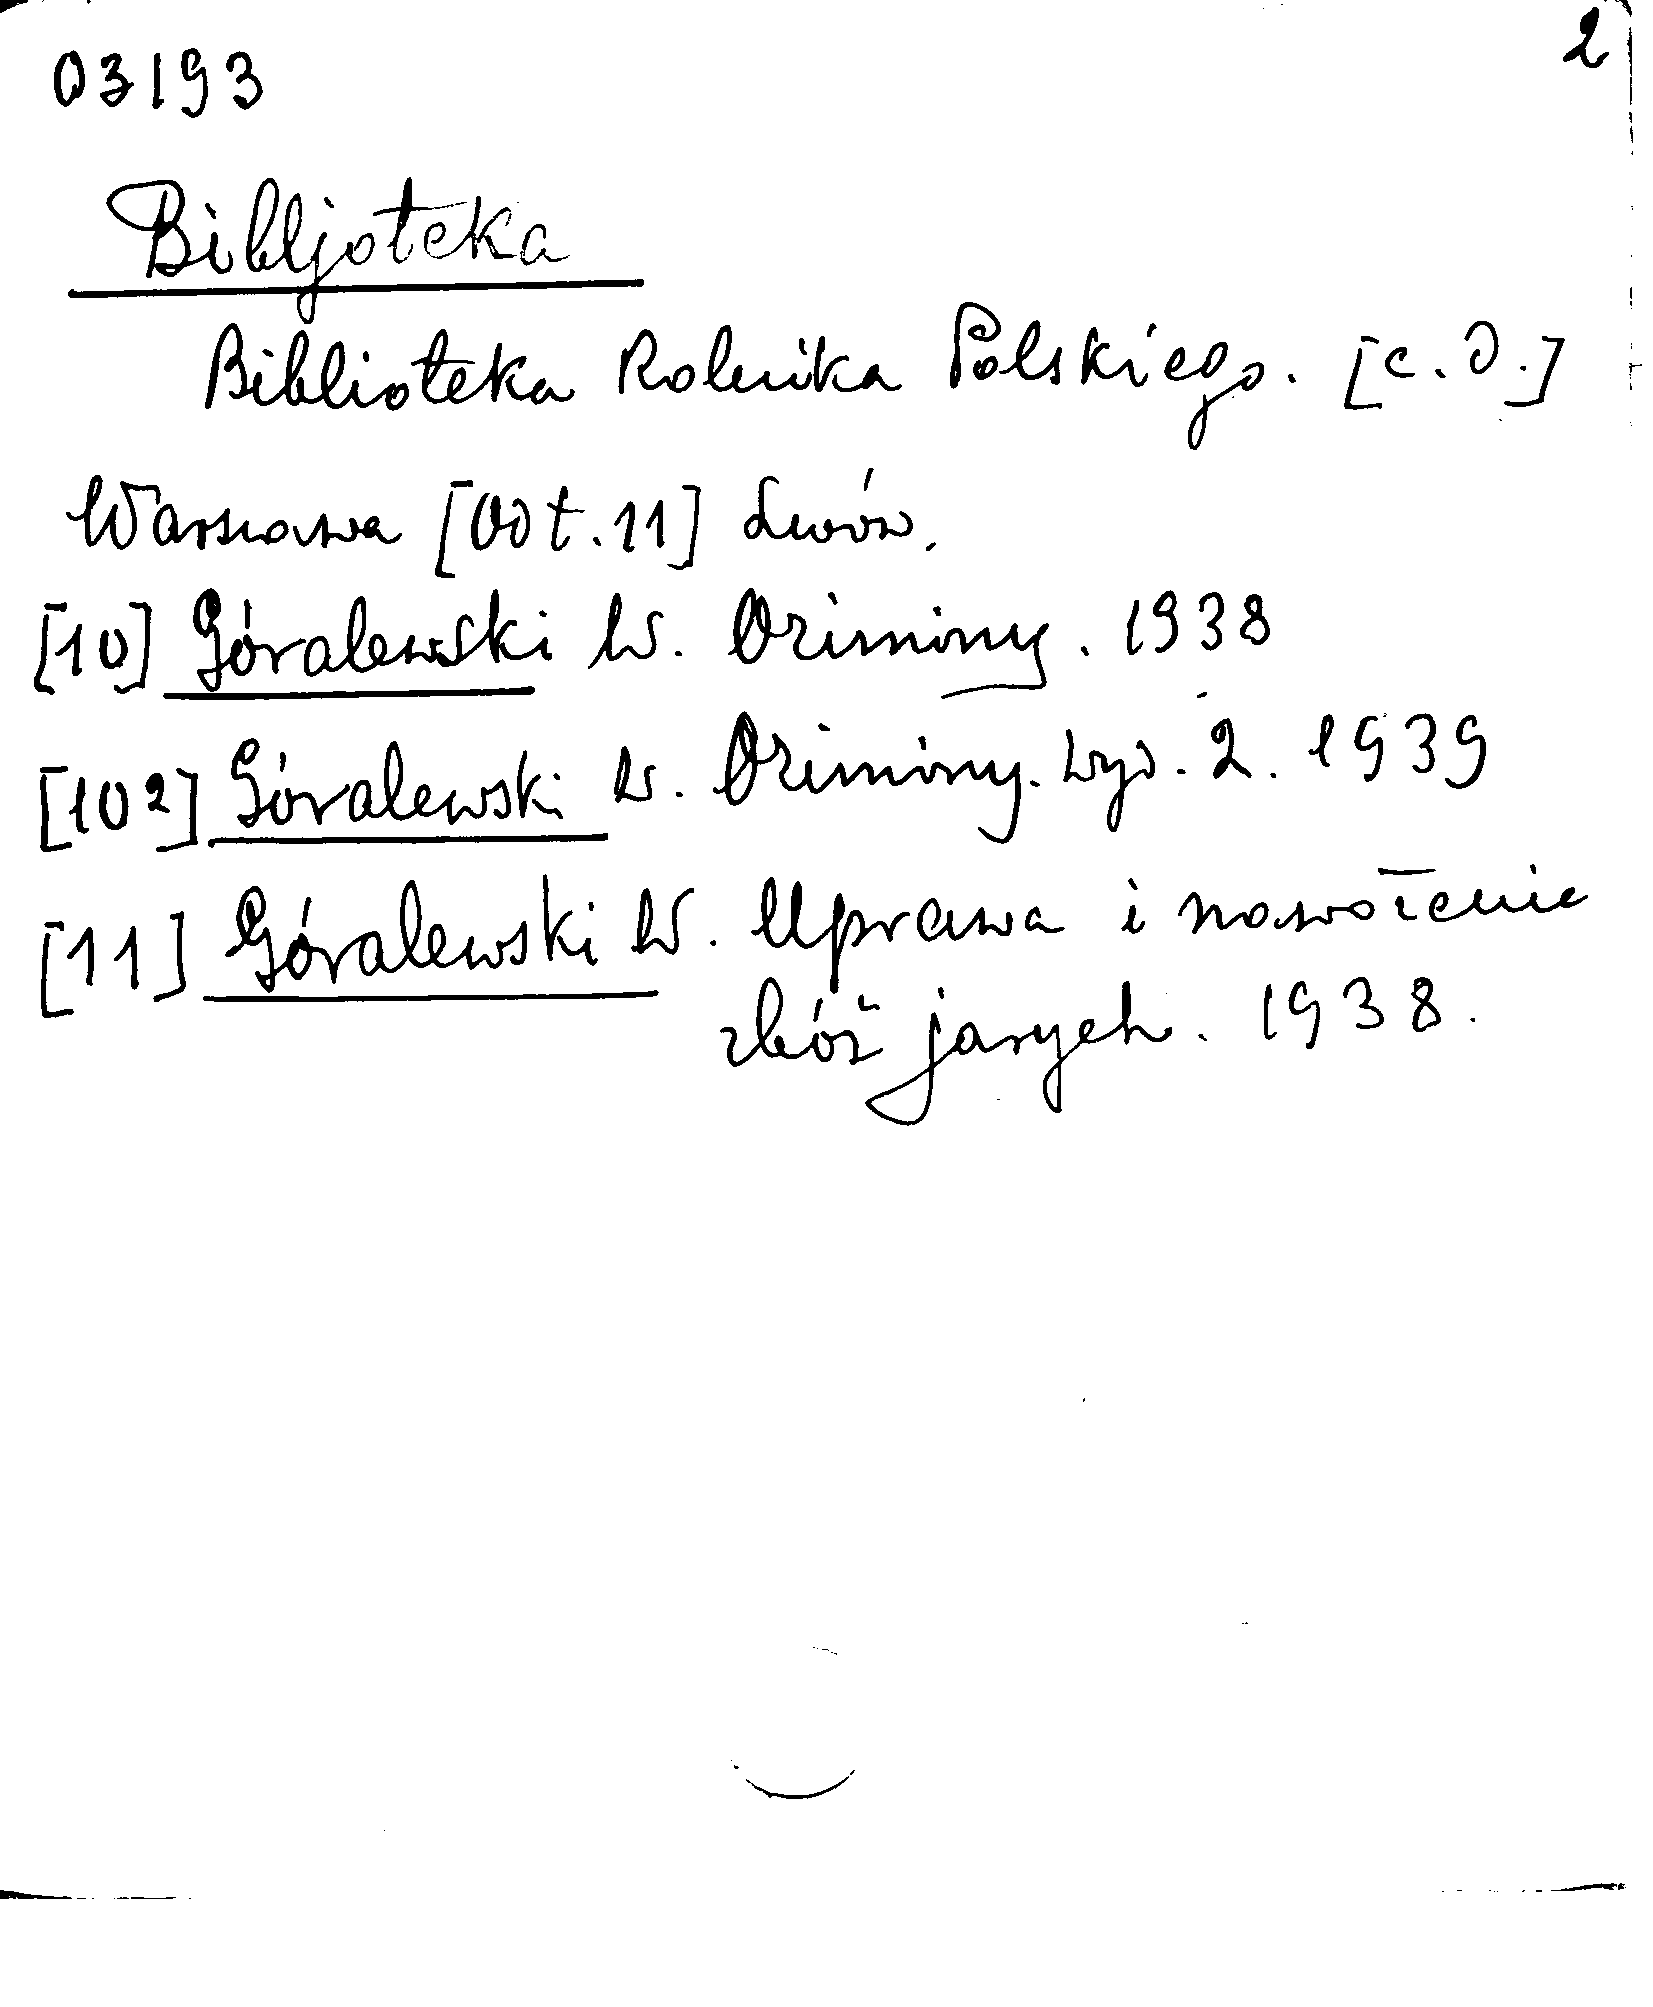 2
03193
Bibljoteka
Biblioteka Rolnika Polskiego. [c.d.]
Warszawa [Od t. 11] Lwów.
[10] Góralewski W. Oziminy. 1938
[10²] Góralewski W. Oziminy. Wyd. 2. 1939
[11] Góralewski W. Uprawa i nawożenie
zbóż jarych. 1938.